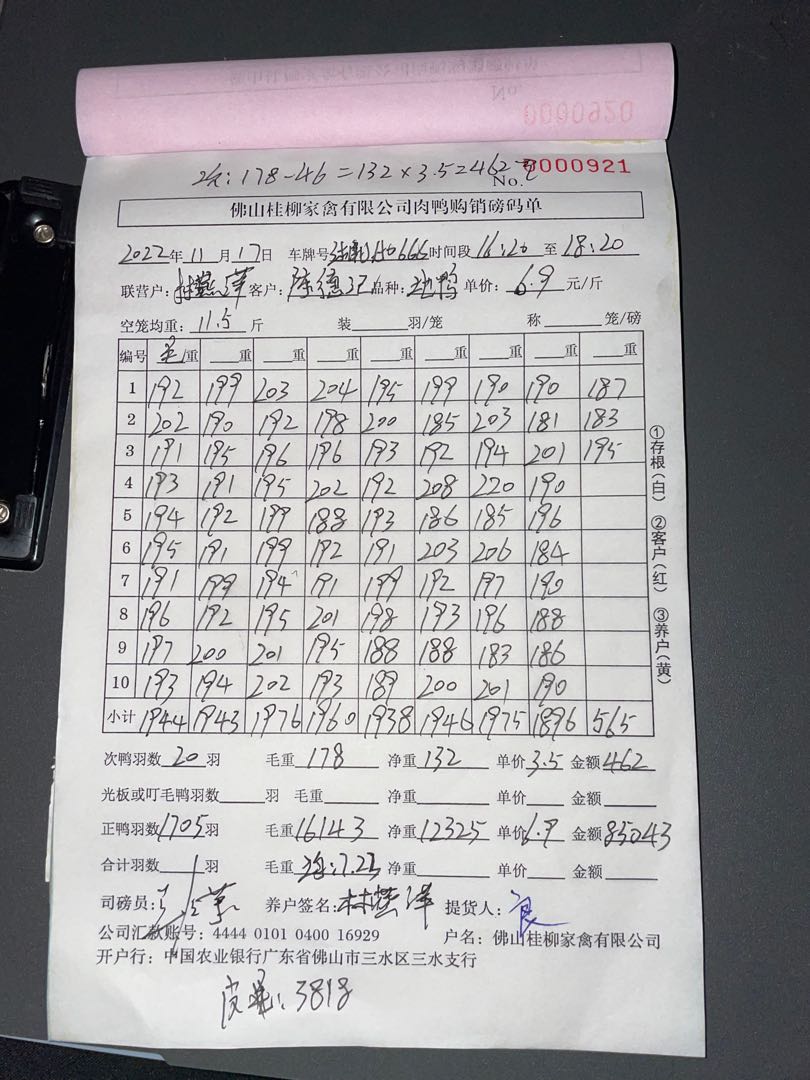 0000920
次:178-46=132×3.5=462元
No. 0000921
佛山桂柳家禽有限公司肉鸭购销磅码单
2022年11月17日 车牌号 A0666 时间段16:20至18:20
联营户: 客户:陈德 品种: 鸭 单价:6.9元/斤
空笼均重:11.5斤 装 羽/笼 称 笼/磅
编号 毛重 重 重 重 重 重 重 重 重
1 192 199 203 204 195 199 190 190 187
2 202 190 192 198 200 185 203 181 183
3 191 195 196 196 193 192 194 201 195
4 193 191 195 202 192 208 220 190
5 194 192 199 188 193 186 185 196
6 195 191 199 192 191 203 206 184
7 191 199 194 191 199 192 197 190
8 196 192 195 201 198 193 196 188
9 197 200 201 195 188 188 183 186
10 193 194 202 193 189 200 201 190
小计 1944 1943 1976 1960 1938 1946 1975 1896 565
①存根(白) ②客户(红) ③养户(黄)
次鸭羽数20羽 毛重178 净重132 单价3.5 金额462
光板或叮毛鸭羽数 羽 毛重 净重 单价 金额
正鸭羽数1705羽 毛重16143 净重12325 单价6.9 金额85043
合计羽数 羽 毛重 7.23 净重 单价 金额
司磅员: 养户签名: 提货人:
公司汇款账号:4444 0101 0400 16929 户名:佛山桂柳家禽有限公司
开户行:中国农业银行广东省佛山市三水区三水支行
皮重:3818